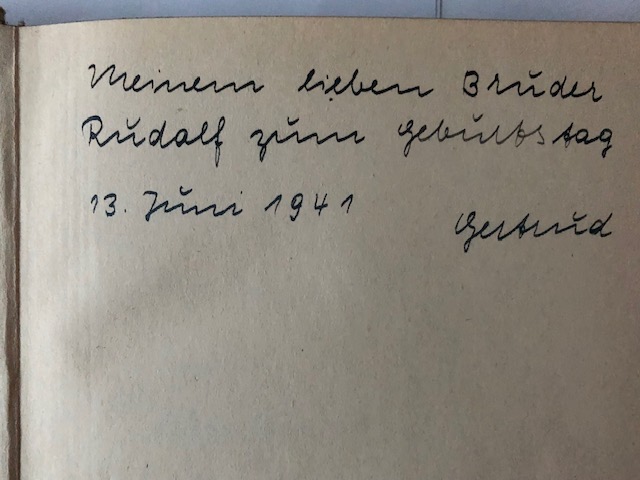 Meinem lieben Bruder
Rudolf zum Geburtstag
13. Juni 1941
Gertrud